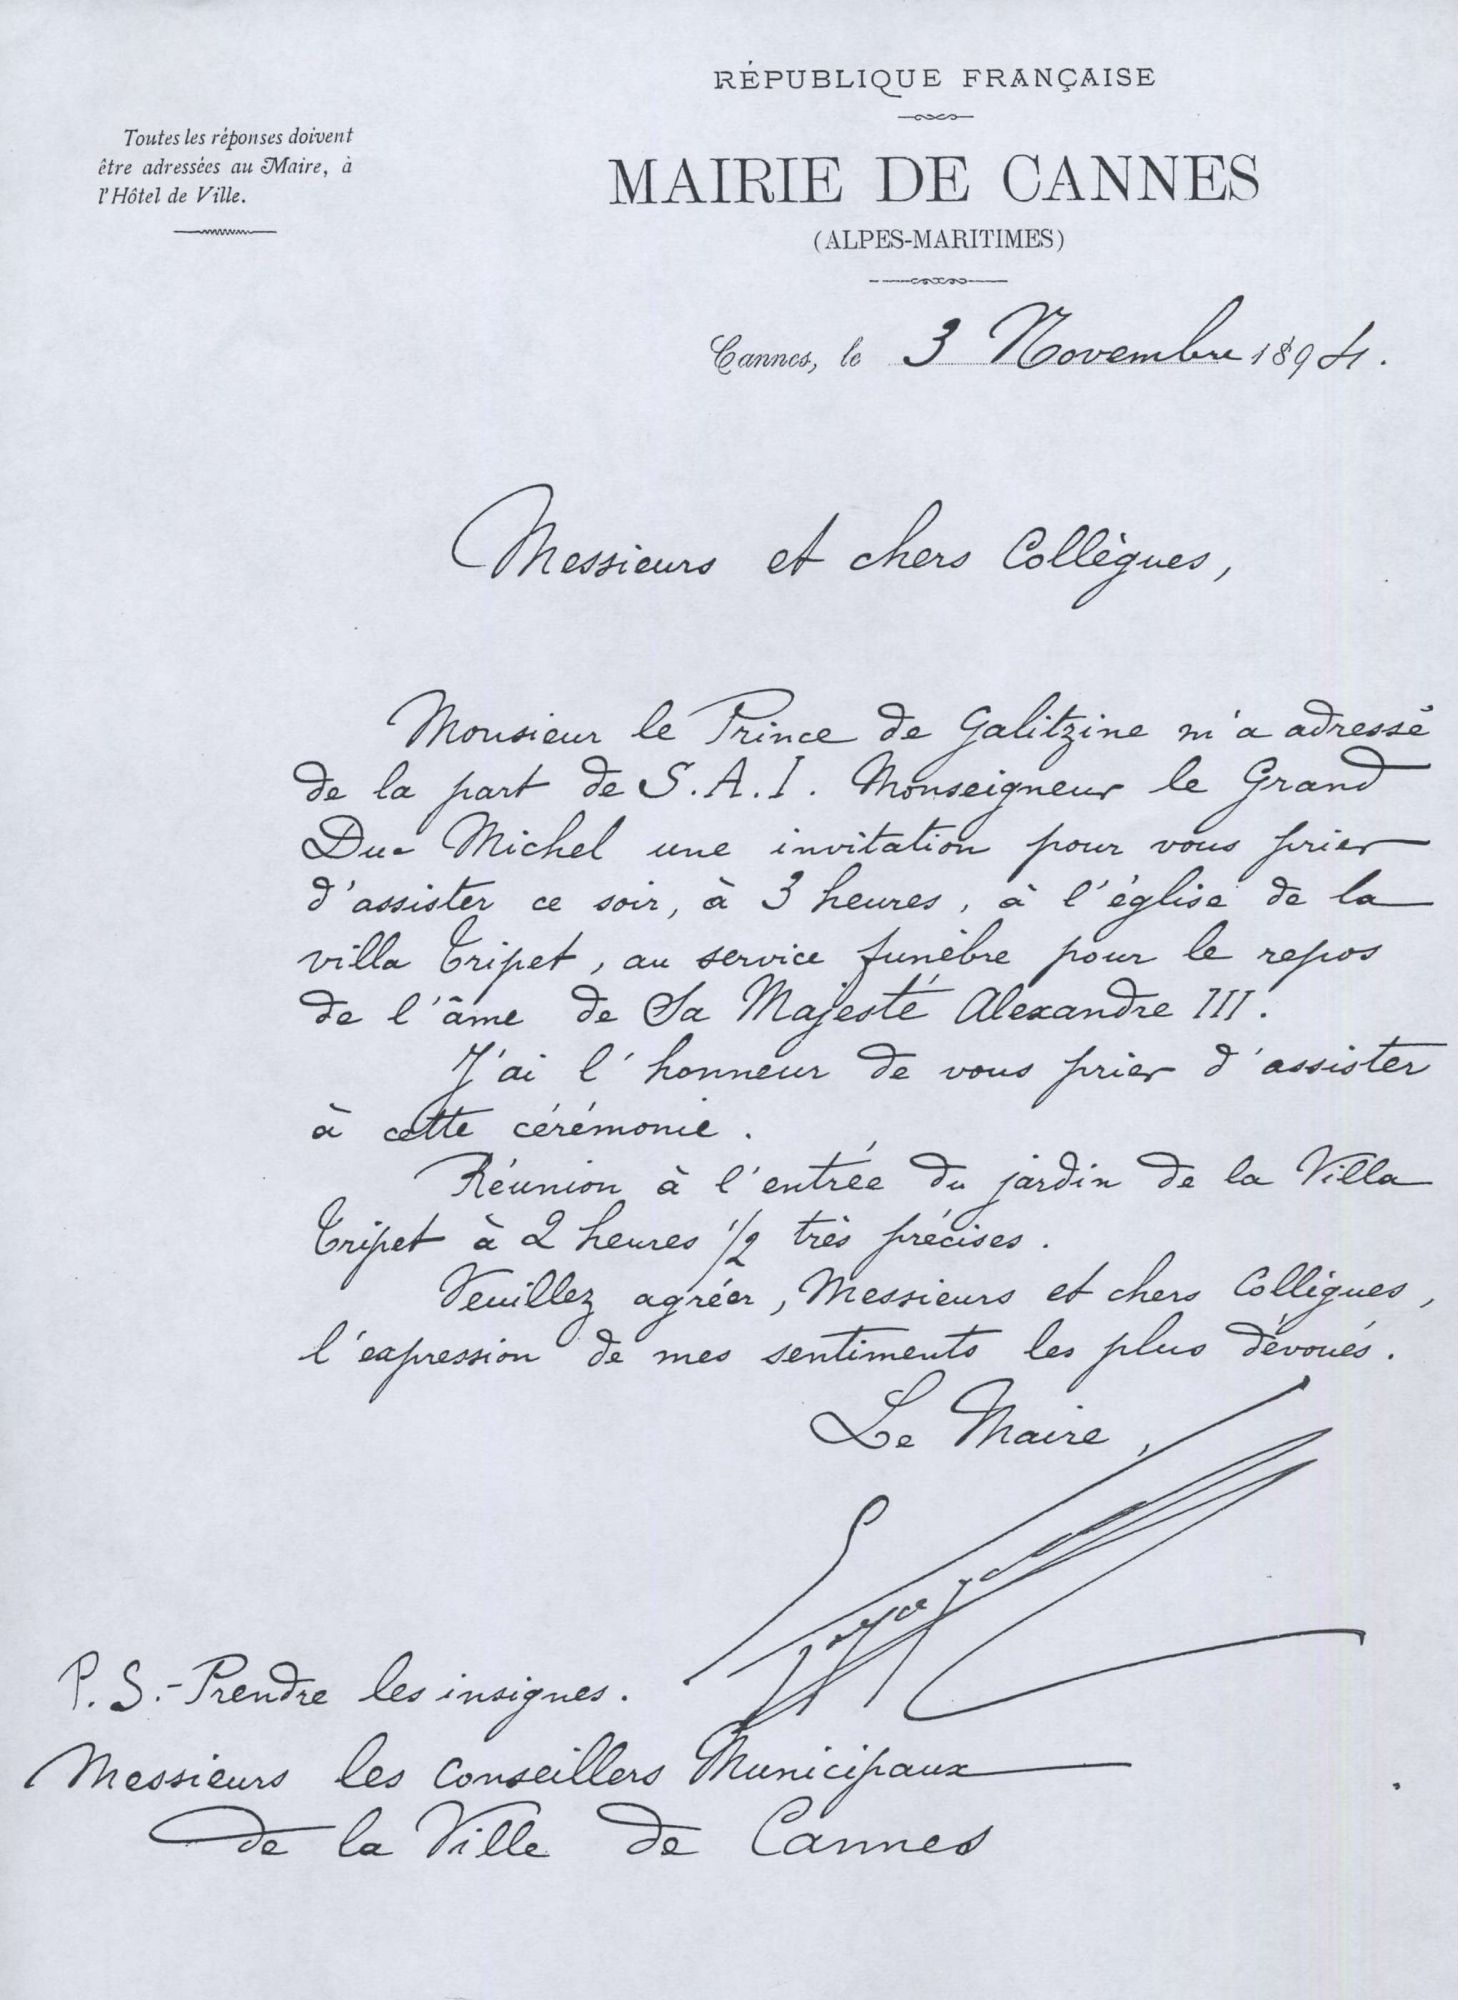 RÉPUBLIQUE FRANÇAISE
Toutes les réponses doivent
être adressées au Maire, à
l'Hôtel de Ville.
MAIRIE DE CANNES
(ALPES-MARITIMES)
Cannes, le 3 Novembre 1894.
Messieurs et chers Collègues,
Monsieur le Prince de Galitzine m'a adressé
de la part de S.A.I. Monseigneur le Grand
Duc Michel une invitation pour vous prier
d'assister ce soir, à 3 heures, à l'église de la
villa Tripet, au service funèbre pour le repos
de l'âme de Sa Majesté Alexandre III.
J'ai l'honneur de vous prier d'assister
à cette cérémonie.
Réunion à l'entrée du jardin de la Villa
Tripet à 2 heures 1/2 très précises.
Veuillez agréer, Messieurs et chers Collègues,
l'expression de mes sentiments les plus dévoués.
Le Maire,
P.S.- Prendre les insignes.
Messieurs les Conseillers Municipaux
de la Ville de Cannes